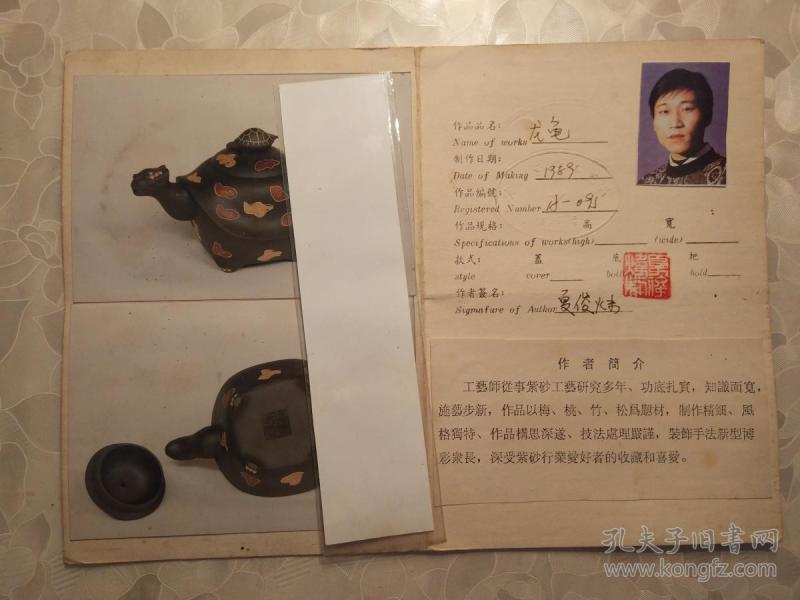 作品品名:
Name of works 龙龟
制作日期:
Date of Making 1989
作品编號:
Registered Number
作品规格: 高 寬
Specifications of works(high) (wide)
款式: 蓋 底 把
style cover hold
作者簽名:
Signafure of Author 夏俊炜
作者簡介
工藝師從事紫砂工藝研究多年、功底扎實，知識面寬，
施藝步新，作品以梅、桃、竹、松爲題材，制作精细、風
格獨特、作品構思深遂、技法處理嚴謹，裝飾手法新型博
彩衆長，深受紫砂行業愛好者的收藏和喜愛。
孔夫子旧书网
www.kongfz.com